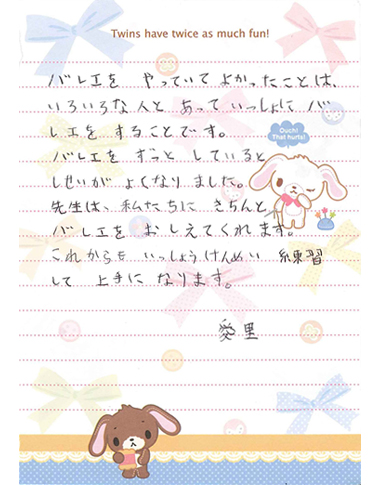 Twins have twice as much fun!
バレエを やっていて よかったことは、
いろいろな人と あって いっしょに バ
レエを することです。
Ouch!
That hurts!
バレエを ずっと していると
しせいが よくなり ました。
先生は、私たちに きちんと
バレエを おしえてくれます。
これからも いっしょうけんめい 練習
して 上手に なります。
愛里